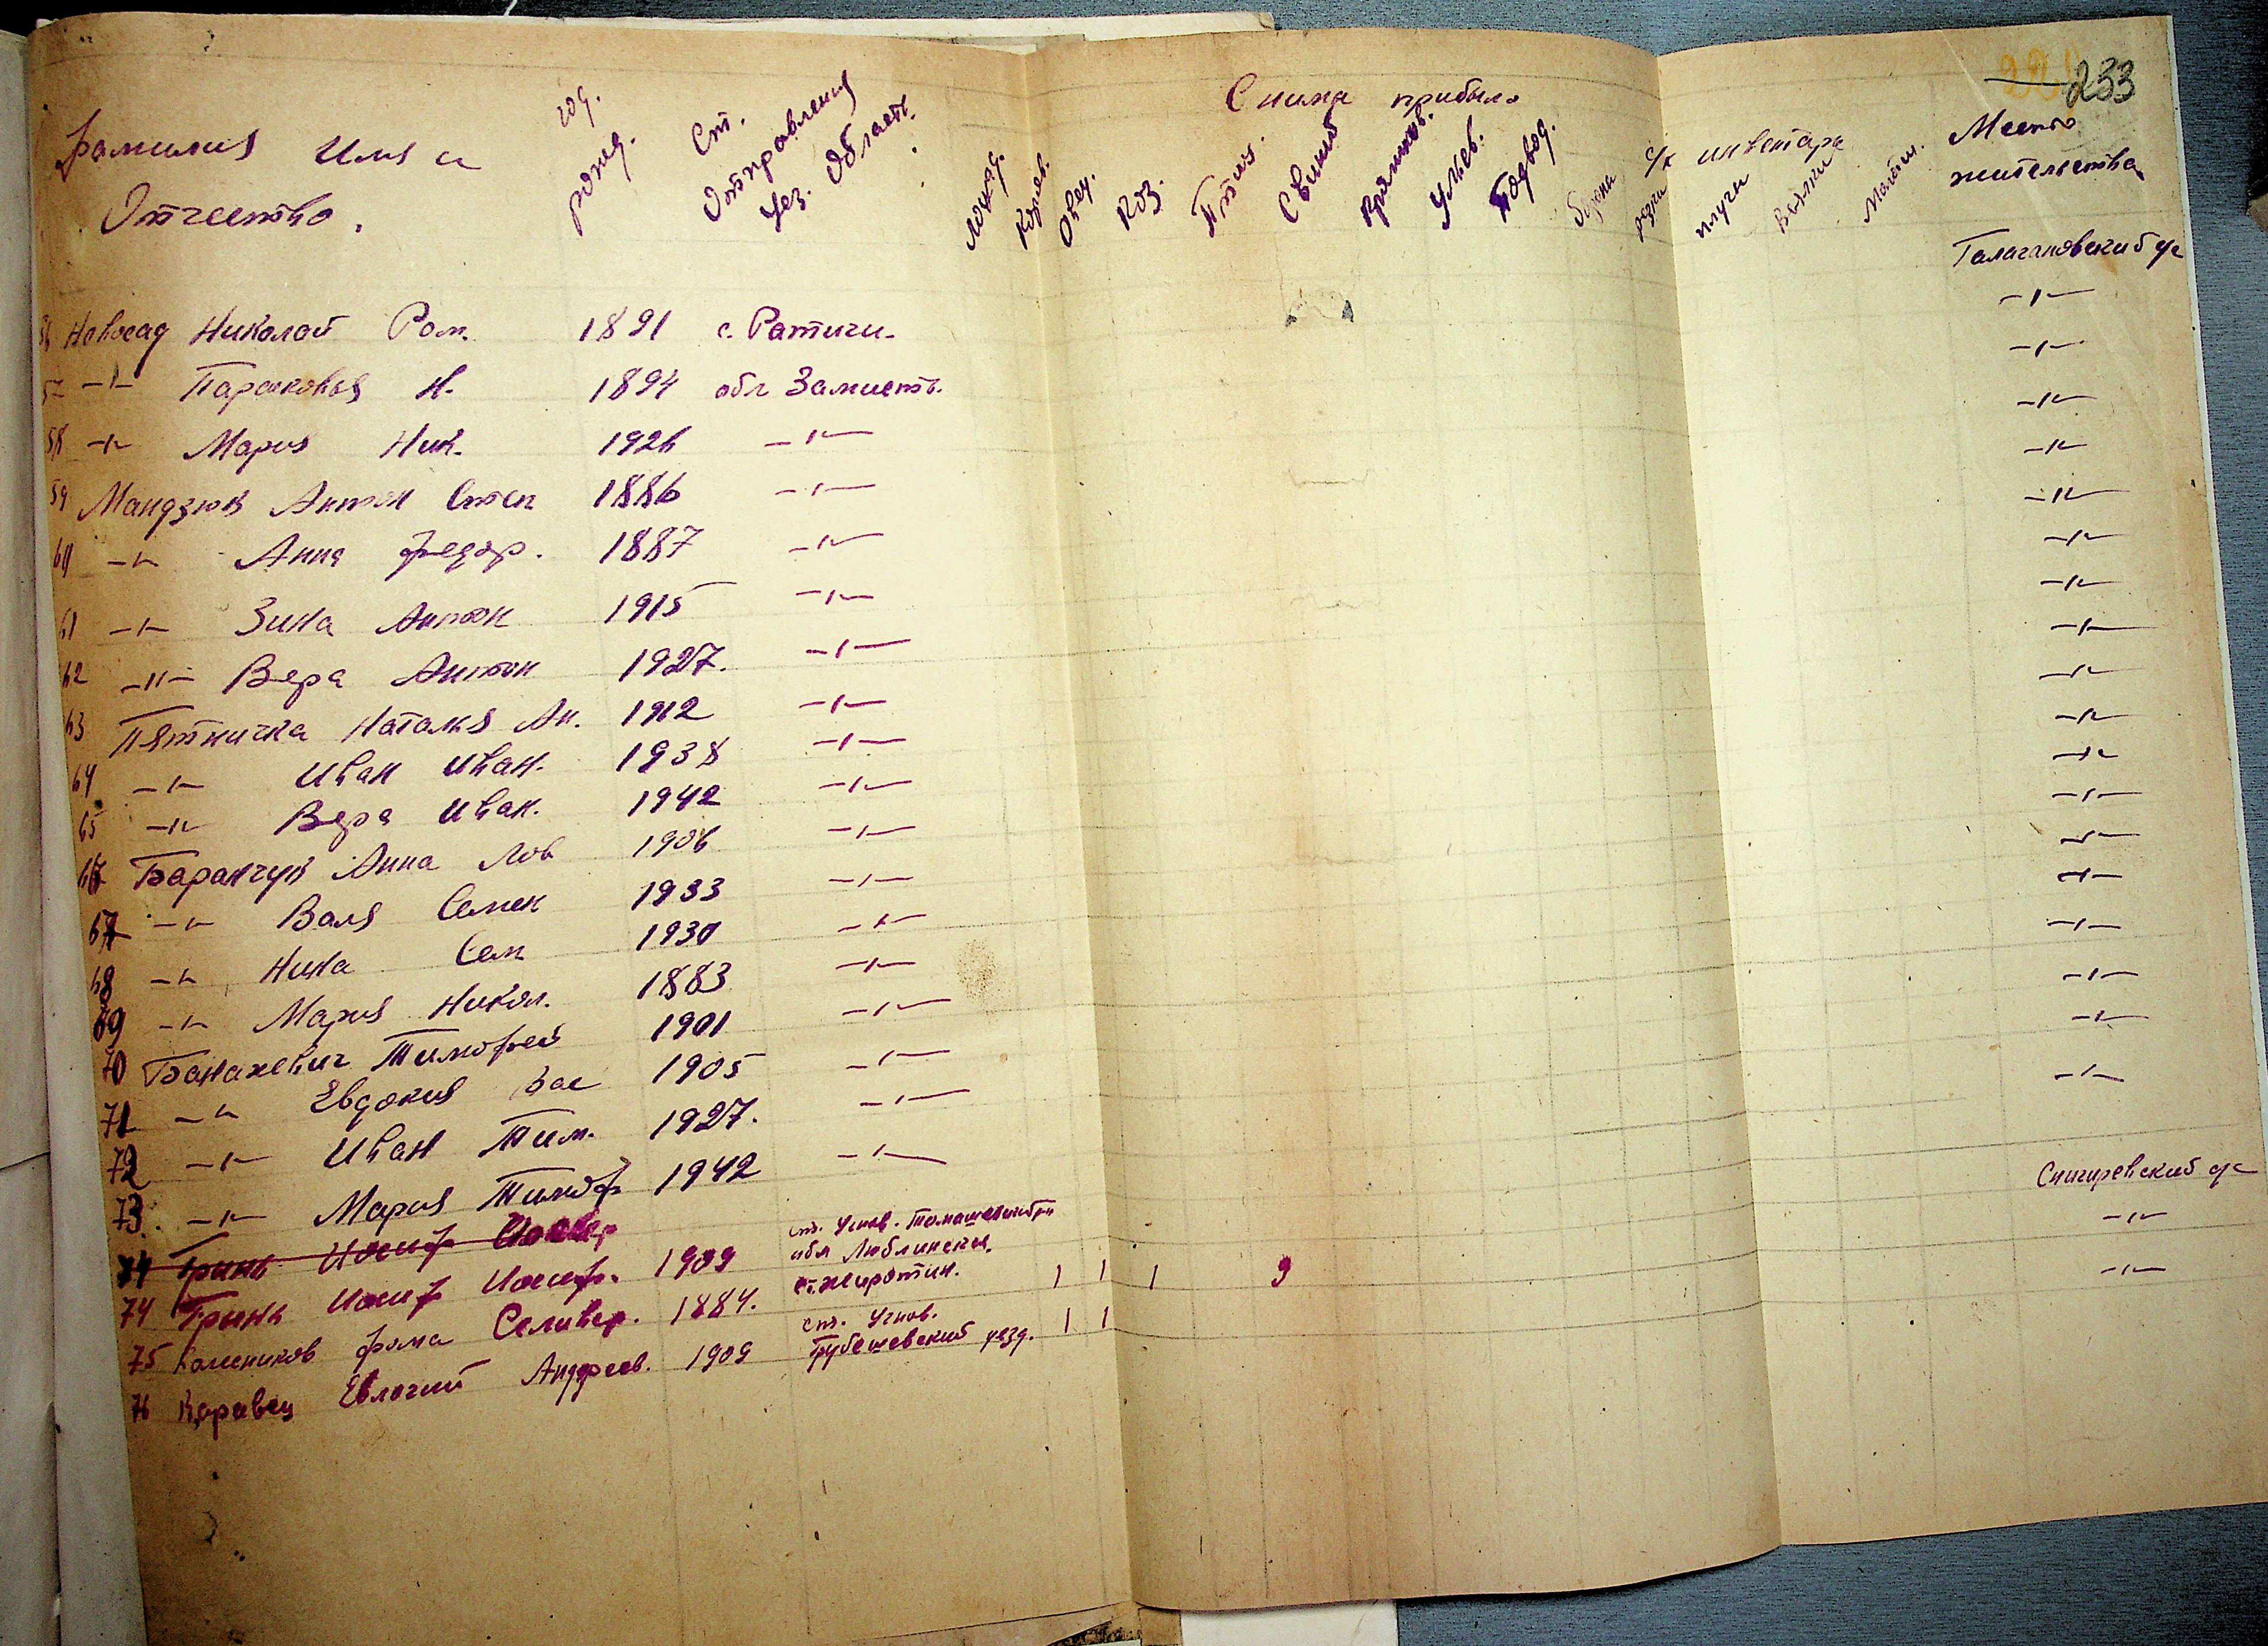 233
Фамилия Имя и Отчество.
год. рожд.
Ст. Отправления Уез. Область.
С ними прибыло
лошад.
Коров.
Овец.
Коз.
Птиц.
Свиней
Ульев.
Подвод.
с/х инвентарь
плуги
Место жительства
56 Новосад Николай Ром. 1891 с. Ратичи.
57 -"- Парасковья Н. 1894 обл Замисть. -"-
58 -"- Мария Ник. 1926 -"- -"-
59 Мандзюк Антон Степ 1886 -"- -"-
60 -"- Анна Федор. 1887 -"- -"-
61 -"- Зина Антон 1915 -"- -"-
62 -"- Вера Антон 1927. -"- -"-
63 Пятничка Наталья Ан. 1912 -"- -"-
64 -"- Иван Иван. 1938 -"- -"-
65 -"- Вера Иван. 1942 -"- -"-
66 Баранчук Анна 1906 -"- -"-
67 -"- Валя Семен 1933 -"- -"-
68 -"- Нина Сем 1930 -"- -"-
69 -"- Мария Никол. 1883 -"- -"-
70 Банахевич Тимофей 1901 -"- -"-
71 -"- Евдокия Вас 1905 -"- -"-
72 -"- Иван Тим. 1927. -"- -"-
73. -"- Мария Тимоф 1942 -"- -"-
74 Гринь Иосиф
74 Гринь Иосиф Иосиф. 1909 обл Люблинская. Снигиревский
75 Фома Селивер. 1884. 1 1 1 9 -"-
76 Кравец Евлогий Андреев. 1909 ст. Угнов. Грубешевский уезд. 1 1 -"-